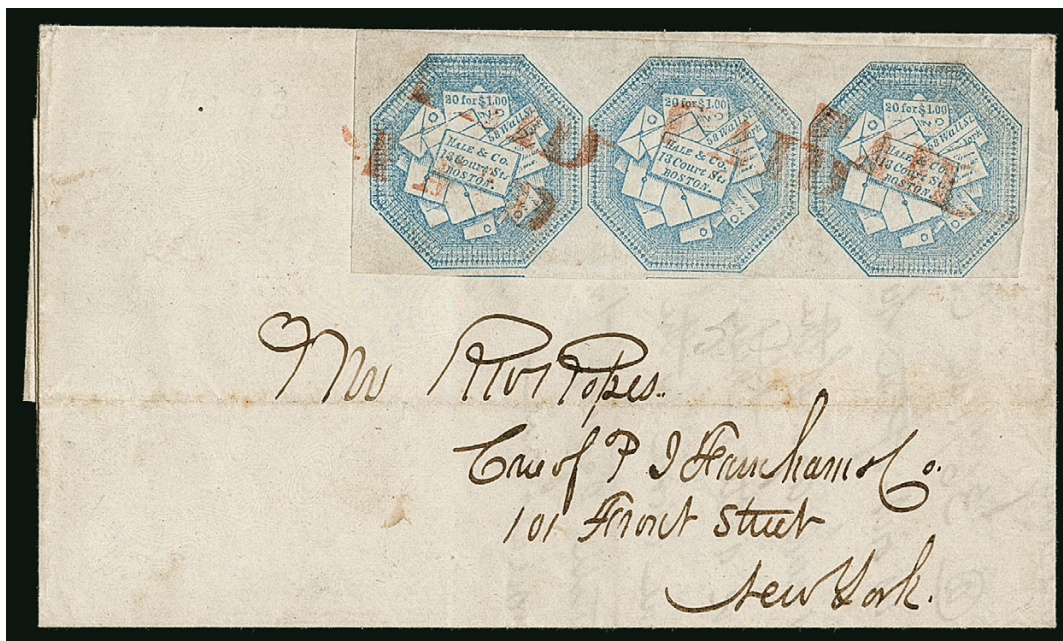 20 for $1.00
58 Wall St.
HALE & Co.
13 Court St.
BOSTON.
20 for $1.00
58 Wall St.
York
HALE & Co.
13 Court St.
BOSTON.
20 for $1.00
58 Wall St.
York
HALE & Co.
13 Court St.
BOSTON.
PAID
Mr
Care of P J Farnham & Co.
101 Front Street
New York.